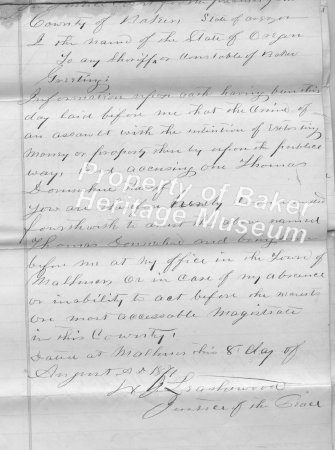 County of Baker, State of Oregon
In the name of the State of Oregon
To any Sheriff or Constable of Baker
Greeting:
Information upon oath having been this
day laid before me that the crime of
an assault with the intention of
Money or property then by upon the public
way, accusing one Thomas
Donnahue
You are hereby
fourthwith to arrest the above named
Thomas Donnahue and bring
before me at my office in the Town of
Malheur, or in case of my absence
or inability to act before the nearest
or most accessable Magistrate
in this County,
Dated at Malheur this 8 day of
August AD 18
Justice of the Peace
Property of Baker
Heritage Museum